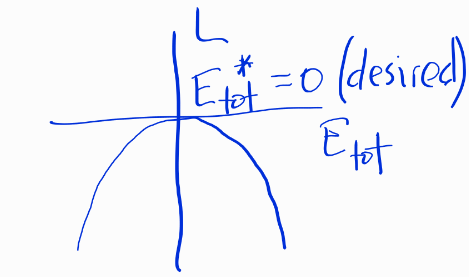 L
E_tot^* = 0 (desired)
E_tot